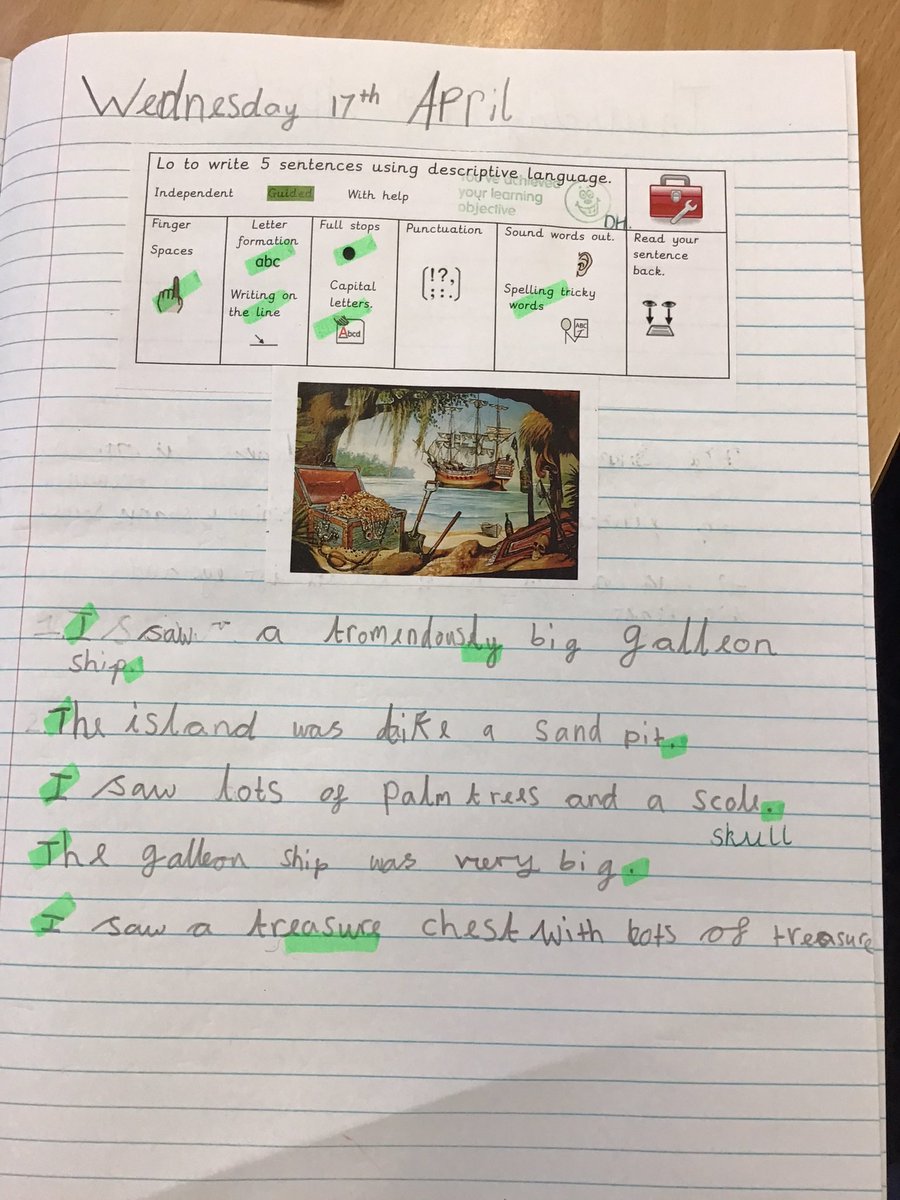 Wednesday 17th April
Lo to write 5 sentences using descriptive language.
Independent Guided With help
You've achieved your learning objective
DH.
Finger Spaces
Letter formation
abc
Writing on the line
Full stops
Capital letters.
Abcd
Punctuation
(!?,;:.)
Sound words out.
Spelling tricky words
ABC
Read your sentence back.
I saw a tromendously big galleon
ship.
The island was like a sand pit.
I saw lots of palm trees and a scole.
skull
The galleon ship was very big.
I saw a treasure chest with lots of treasure